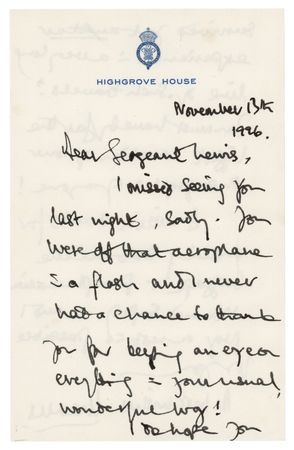 HIGHGROVE HOUSE
November 13th
1996.
Dear Sergeant Lewis,
I missed seeing you
last night, sadly. You
were off that aeroplane
in a flash and I never
had a chance to thank
you for keeping an eye on
everything in your usual,
wonderful way!
I do hope you